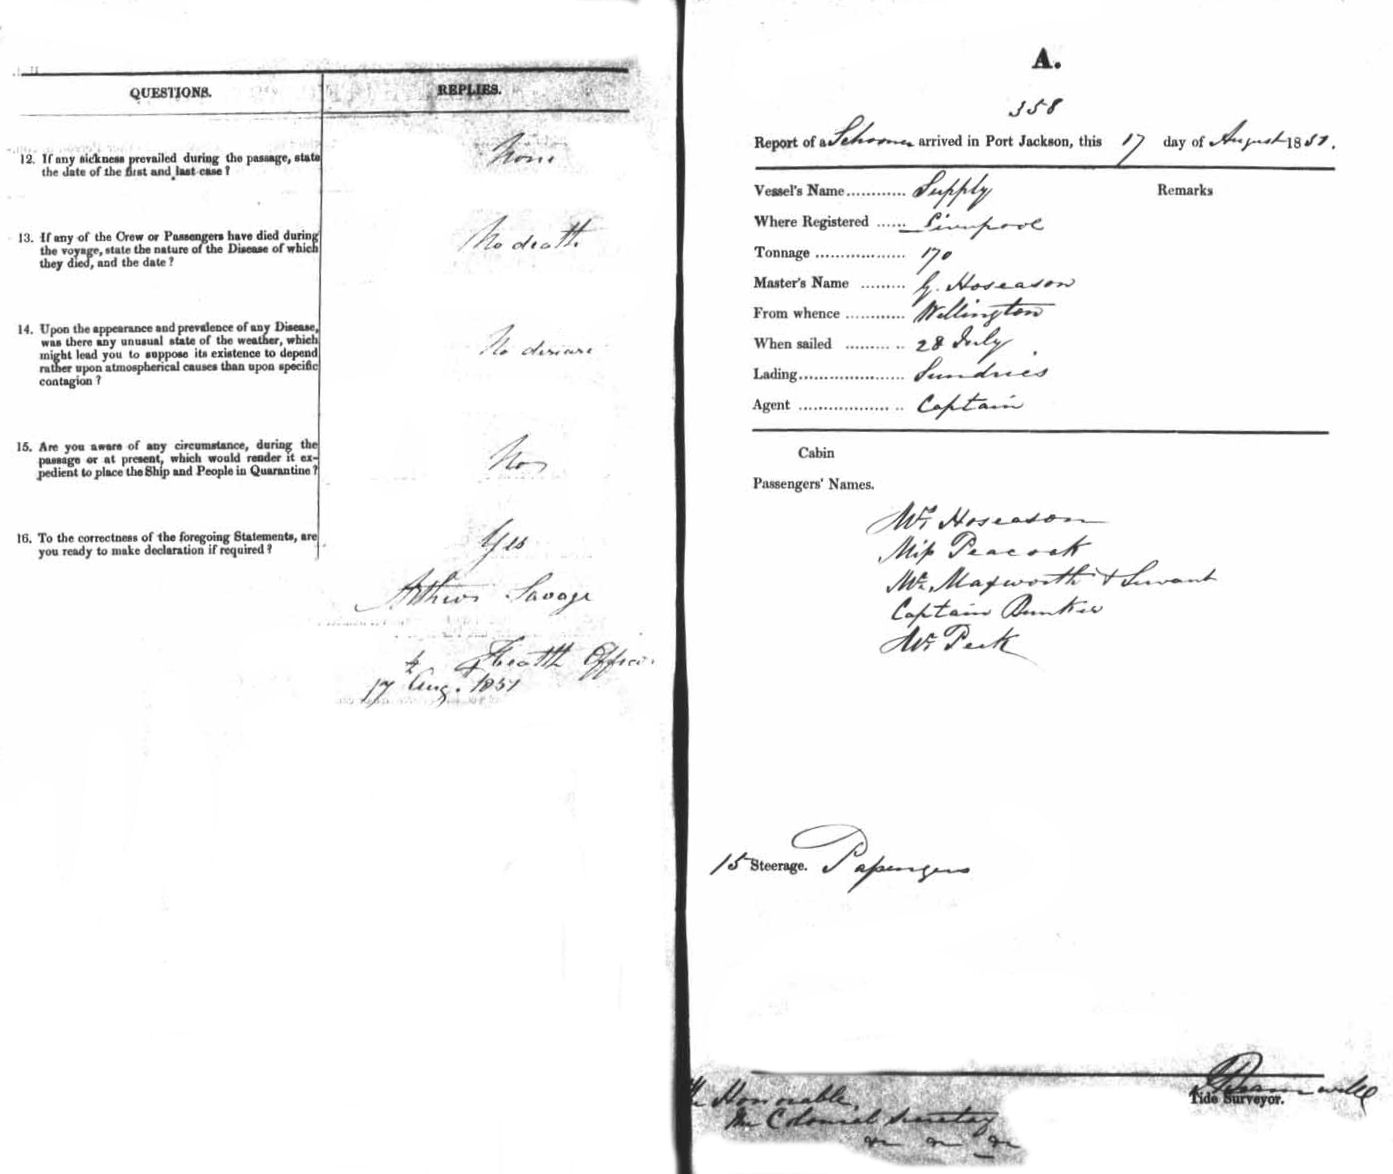 QUESTIONS.
REPLIES.
12. If any sickness prevailed during the passage, state
the date of the first and last case ?
None
13. If any of the Crew or Passengers have died during
the voyage, state the nature of the Disease of which
they died, and the date ?
No death
14. Upon the appearance and prevalence of any Disease,
was there any unusual state of the weather, which
might lead you to suppose its existence to depend
rather upon atmospherical causes than upon specific
contagion ?
No disease
15. Are you aware of any circumstance, during the
passage or at present, which would render it ex-
pedient to place the Ship and People in Quarantine ?
No
16. To the correctness of the foregoing Statements, are
you ready to make declaration if required ?
Yes
Arthur Savage
Health Officer
17 Aug. 1851
A.
358
Report of a Schooner arrived in Port Jackson, this 17 day of August 1851.
Vessel's Name............ Supply
Remarks
Where Registered ...... Liverpool
Tonnage .................. 170
Master's Name ......... G. Hoseason
From whence ............ Wellington
When sailed ......... .. 28 July
Lading..................... Sundries
Agent .................. .. Captain
Cabin
Passengers' Names.
Mr. Hoseason
Miss Peacock
Mr. Maxworth & Servant
Captain Bunker
Mr. Peek
15 Steerage. Passengers
Tide Surveyor.
The Honorable,
The Colonial Secretary